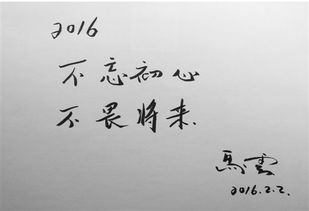 2016
不忘初心
不畏將来.
馬雲
2016.2.2.